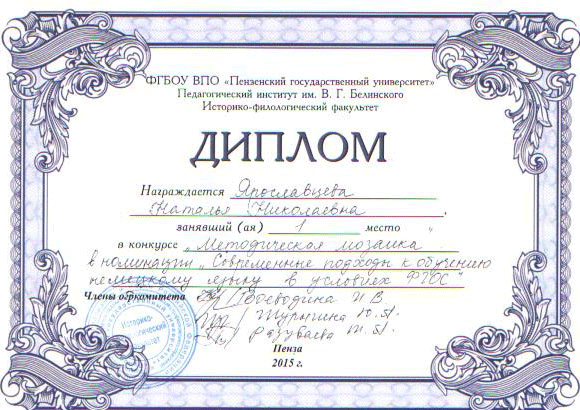 ФГБОУ ВПО «Пензенский государственный университет»
Педагогический институт им. В. Г. Белинского
Историко-филологический факультет
ДИПЛОМ
Награждается Ярославцева
Наталья Николаевна,
занявший (ая) 1 место
в конкурсе „Методическая мозаика
в номинации „Современные подходы к обучению
немецкому языку в условиях ФГОС"
Члены оргкомитета Воеводина
Журыгина
Разуваева
Историко-
филологический
Пенза
2015 г.